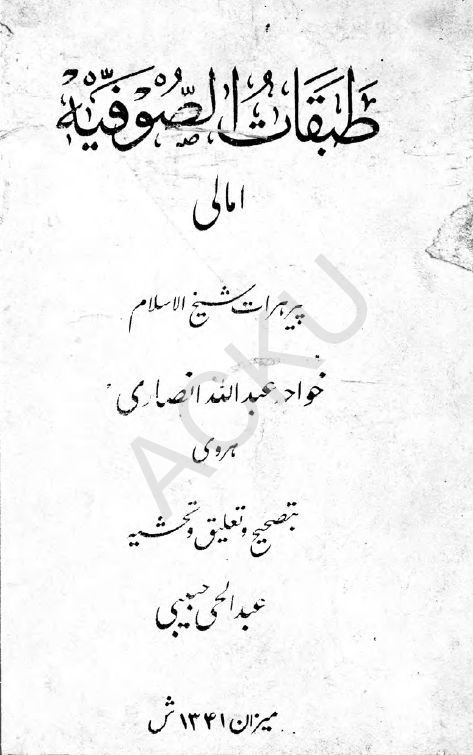 طَبَقَاتُ الصُّوْفِيَّه
امالی
پیر هرات شیخ الاسلام
خواجه عبدالله انصاری
هروی
بتصحیح و تعلیق و تحشیه
عبدالحی حبیبی
میزان ۱۳۴۱ ش
ACKU